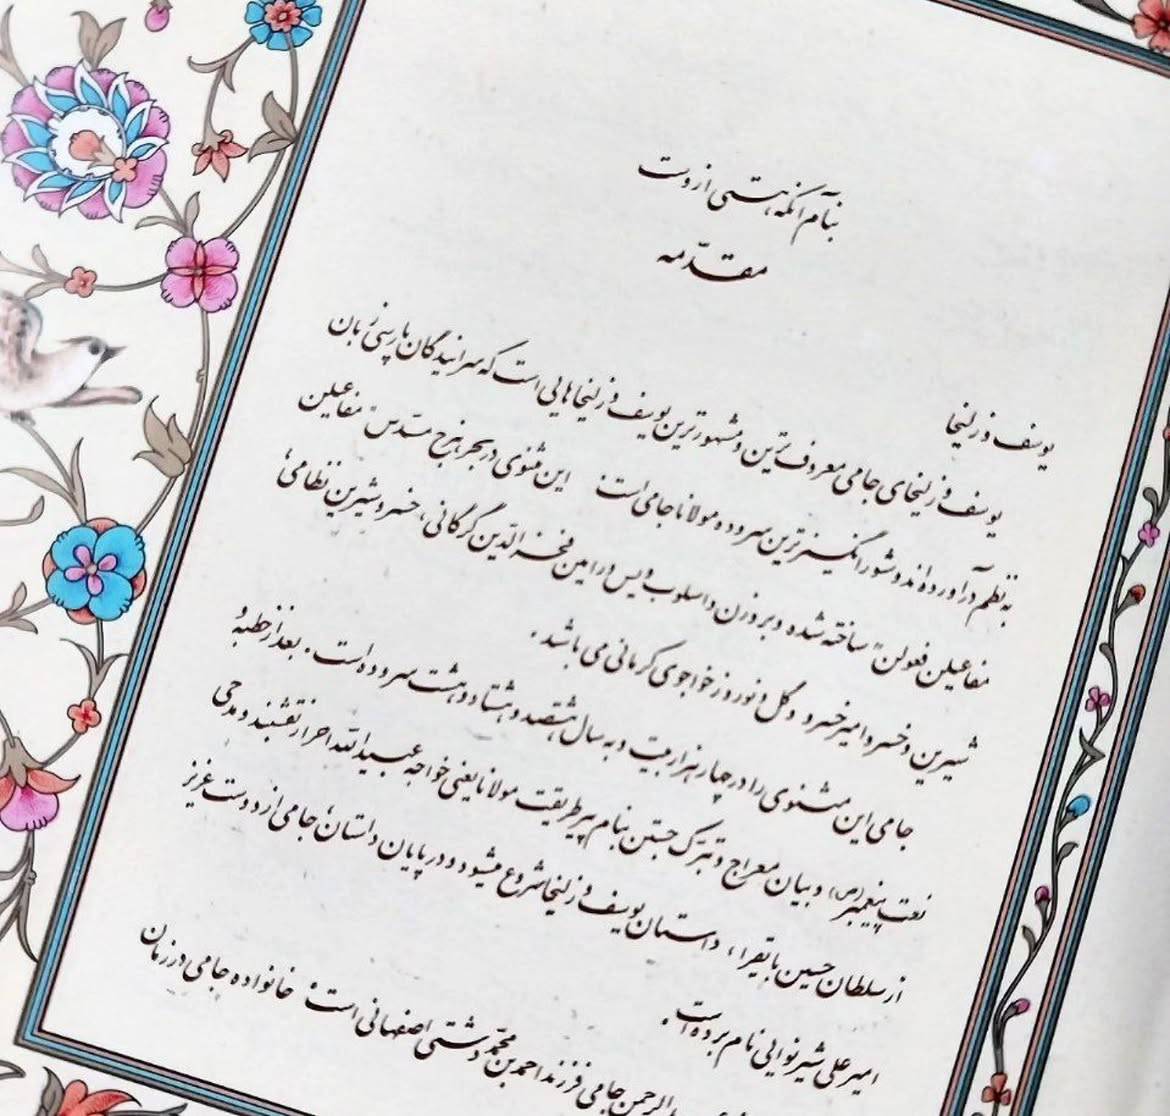 بنام آنکه هستی از اوست
مقدّمه
یوسف و زلیخا
یوسف و زلیخای جامی معروف ترین و مشهورترین یوسف و زلیخاهایی است که سرایندگان پارسی زبان
به نظم درآورده‌اند و شورانگیز ترین سروده مولانا جامی است این مثنوی در بحر هزج مسدّس "مفاعیلن
مفاعیلن فعولن" ساخته شده و بر وزن و اسلوب ویس و رامین فخرالدّین گرگانی، خسرو شیرین نظامی،
شیرین و خسرو امیرخسرو و گل و نوروز خواجوی کرمانی می باشد.
جامی این مثنوی را در چهار هزار بیت و به سال هشتصد و هشتاد و هشت سروده است. بعد از خطبه و
نعت پیغمبر (ص) و بیان معراج و تبرک جستن بنام پیر طریقت مولانا یعنی خواجه عبیدالله احرار نقشبند و مدحی
از سلطان حسین بایقرا، داستان یوسف و زلیخا شروع میشود و در پایان داستان، جامی از دوست عزیز
امیر علی شیر نوایی نام برده است.
الرحمن جامی فرزند احمد بن محمّد دشتی اصفهانی است. خانواده جامی در زمان